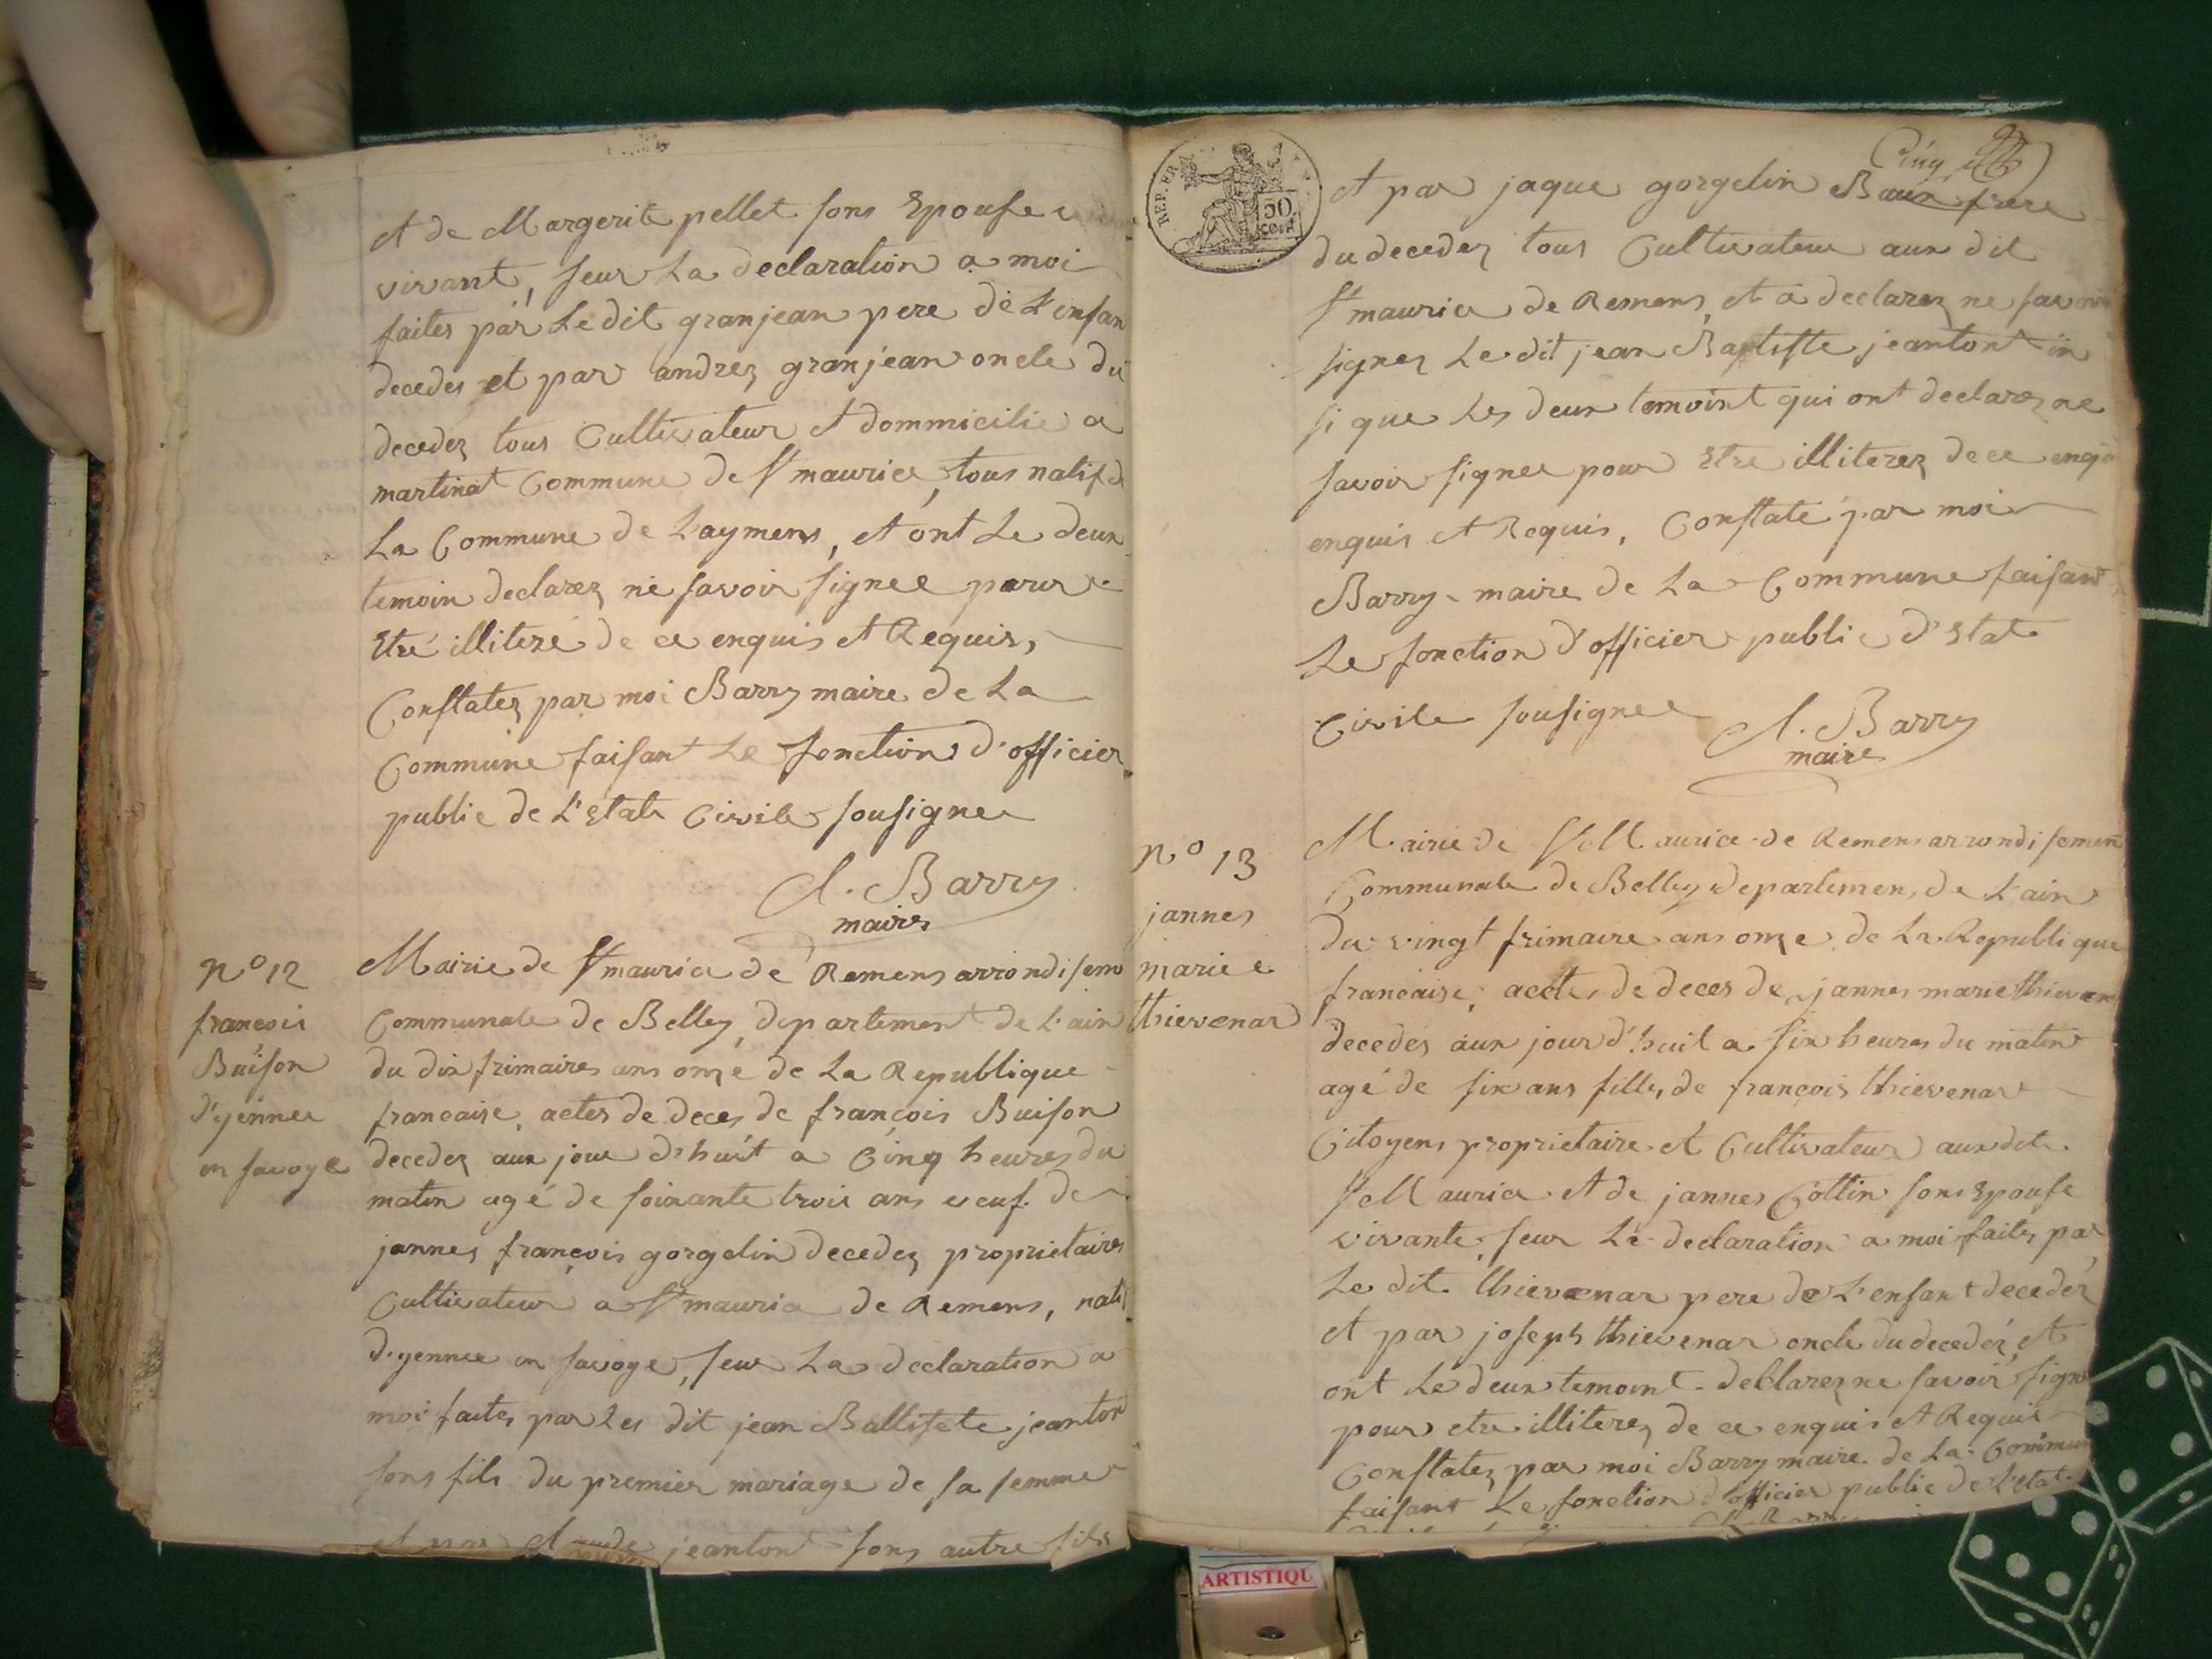 et de Margerite pellet sons Epouse
vivant, seur La declaration a moi
faites par Le dit granjean pere de L'enfan
decedes et par andrez granjean oncle du
decedez tous Cultivateur et dommicilie a
martinat Commune de St maurice, tous natif d
La Commune de Laymens, et ont Le deux
temoin declarez ne savoir signee pour
Etre illiteré de ce enquis et Requis,
Constatez par moi Barry maire de La
Commune faisant Le fonction d'officier
public de L'Etate Civile sousignee
Cl. Barry
maire
n° 12
francois
Buison
d'yennee
en savoye
Mairie de St maurice de Remens arrondisemo
Communale de Belley, departement de L'ain
du dix frimaires ans onze de La Republique
francaise, actes de deces de françois Buison
decedez aux jour d'huit a Cinq heures du
matin agé de soixante trois ans veuf de
jannes françois gorgelin decedez proprietaires
Cultivateur a St maurice de Remens, natif
d'yennee en savoye, seur La declaration a
moi faites par Les dit jean Ballisete jeanton
sons fils du premier mariage de sa femme
et par Claude jeantont sons autre fils
REP. FR
50
cent
Cinq
et par jaque gorgelin Baux frere
du decedez tous Cultivateur aux dit
St maurice de Remens, et a declarez ne savoir
signez Le dit jean Baptiste jeantont in
si que Les deux temoint qui ont declarez ne
savoir signee pour Etre illiterez de ce
enquis et Requis, Constaté par moi
Barry maire de La Commune faisant
Le fonction d'officier public d'Etat
Civile sousignee
Cl. Barry
maire
n° 13
jannes
mariee
thievenar
Mairie de St Maurice de Remens arrondisemen
Communale de Belley departemens de L'ain
du vingt frimaire ans onze de La Republique
francaise, actes de deces de jannes marie thievenar
decedes aux jour d'huit a six heures du matin
agé de six ans fille de françois thievenar
Citoyens proprietaire et Cultivateur aux dit
St Maurice et de jannes Cottin sons Epouse
vivante, seur Le declaration a moi faites par
Le dit thievenar pere de L'enfant decedez
et par joseph thievenar oncle du decedez, et
ont Le deux temoint declarez ne savoir signe
pour etre illiterez de ce enquis et Requis
Constatez par moi Barry maire de La Commun
faisant Le fonction d'officier public de L'etat
ARTISTIQU